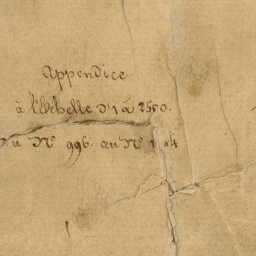 Appendice
à l'Echelle d'1 à 2500.
du Nº 996. au Nº 1